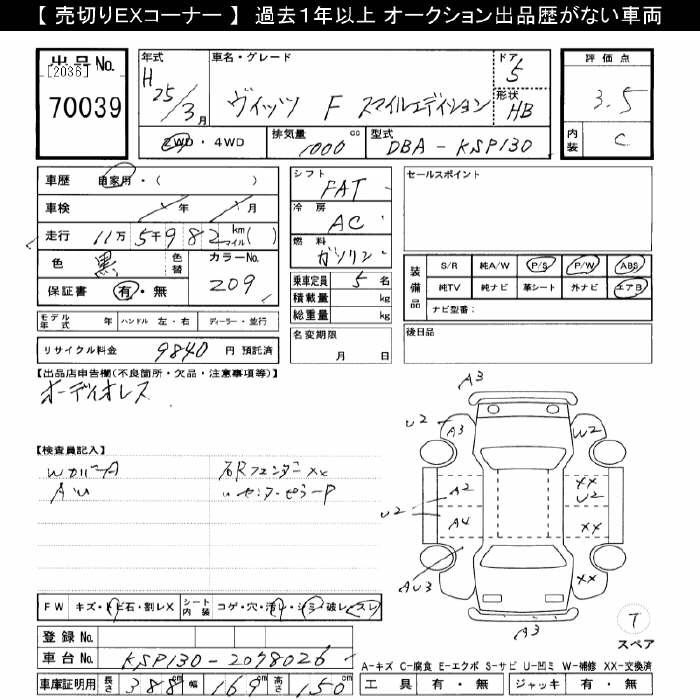 【 売切りEXコーナー 】 過去１年以上 オークション出品歴がない車両
出品No.
[2036]
70039
年式
H 25/3月
車名・グレード
ヴィッツ F スマイルエディション
ドア
5
形状
HB
2WD・4WD
排気量 1000 cc
型式 DBA-KSP130
評価点
3.5
内装
C
車歴 自家用・( )
車検 / 年 / 月
走行 11万5千982 km マイル( )
色 黒 色替
カラーNo. 209
保証書 有・無
シフト FAT
冷房 AC
燃料 ガソリン
乗車定員 5名
積載量 kg
総重量 kg
名変期限
月 日
セールスポイント
装備品
S/R 純A/W P/S P/W ABS
純TV 純ナビ 革シート 外ナビ エアB
ナビ型番：
後日品
モデル年式 年 ハンドル 左・右 ディーラー・並行
リサイクル料金 9840 円 預託済
【出品店申告欄(不良箇所・欠品・注意事項等)】
オーディオレス
【検査員記入】
WカバーA
AU
右Rフェンダー XX
〃センターピラーP
A3
U2
A3
W2
A2
XX
U2
U2
A4
XX
AU3
XX
A3
T
スペア
FW キズ・トビ石・割レX
シート内装 コゲ・穴・汚レ・シミ・破レ・スレ
登録No.
車台No. KSP130-2078026
車庫証明用 長さ 388cm 幅 169cm 高さ 150cm
A-キズ C-腐食 E-エクボ S-サビ U-凹ミ W-補修 XX-交換済
工具 有・無 ジャッキ 有・無